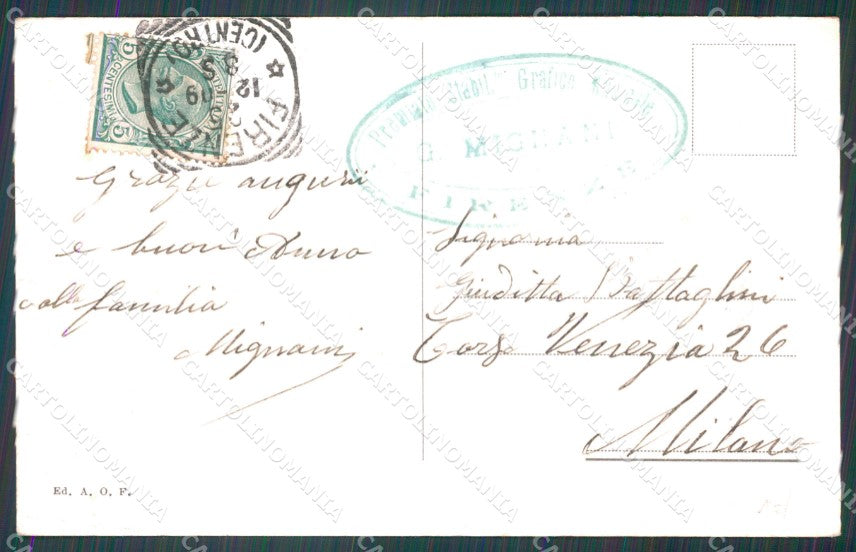 5 5
CENTESIMI
FIRENZE
(CENTRO)
8 S
12
09
Premiato Stabil. Grafico
G. MIGNANI
FIRENZE
Grazie auguri
e buon Anno
alla familia
Mignani
Signorina
Giuditta Battaglini
Corso Venezia 26
Milano
Ed. A. O. F.
CARTOLINOMANIA